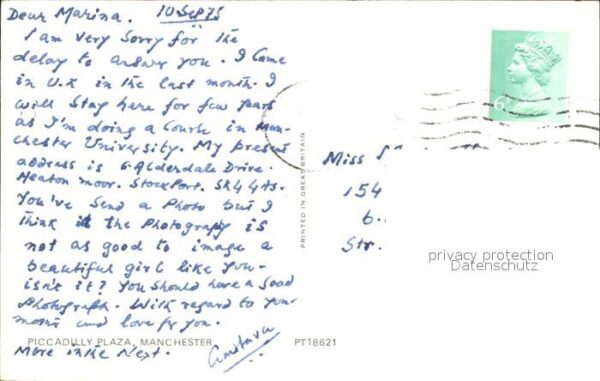 Dear Marina. 10 Sep 75
I am very sorry for the
delay to answer you. I Came
in U.K in the last month. I
will stay here for few years
as I'm doing a Course in Man-
chester University. My present
address is 6. Alderdale Drive.
Heaton moor. Stockport. SK4 4AS.
You've send a Photo but I
think it the Photography is
not as good to image a
beautiful girl like you-
isn't it? You should have a Good
Photograph. With regard to your
moms and love for you.
PICCADILLY PLAZA, MANCHESTER
PT18621
More in the Next.
PRINTED IN GREAT BRITAIN
6
Miss
154
6.
Str.
privacy protection
Datenschutz